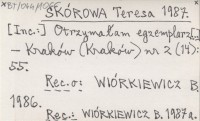 SKÓROWA Teresa 1987.
[Inc.:] Otrzymałam egzemplarz[...]
- Kraków (Kraków) nr 2 (14):
55.
Rec. o: WIÓRKIEWICZ B.
1986.
Rec.: WIÓRKIEWICZ B. 1987a.